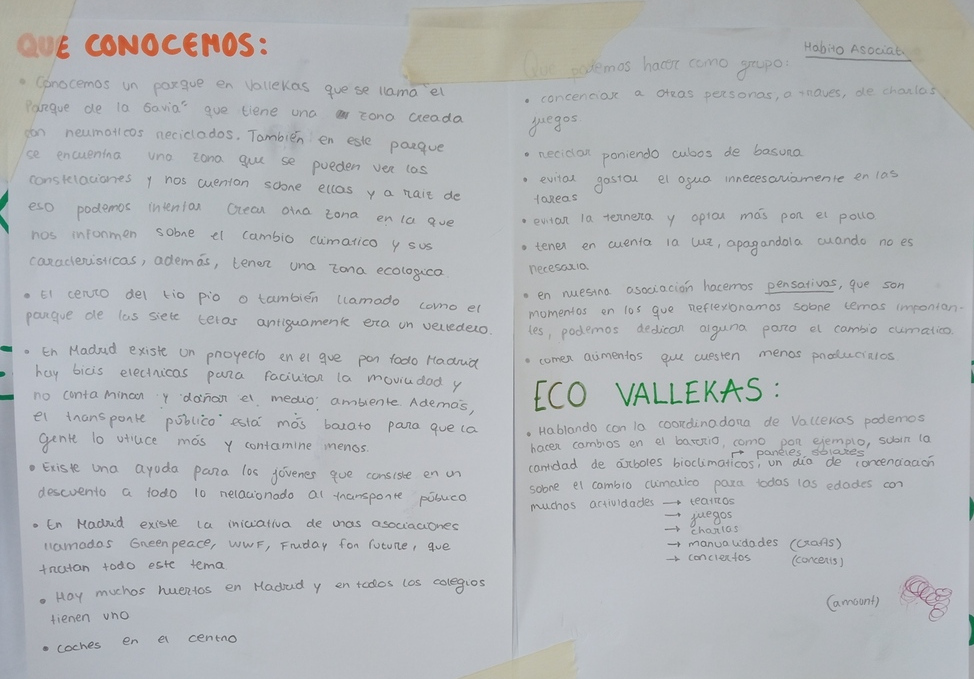 QUE CONOCEMOS:
• Conocemos un parque en Vallekas que se llama "el
Parque de la Gavia" que tiene una zona creada
con neumaticos reciclados. También en este parque
se encuentra una zona que se pueden ver las
constelaciones y nos cuentan sobre ellas y a raiz de
eso podemos intentar crear otra zona en la que
nos informen sobre el cambio climatico y sus
caracteristicas, además, tener una zona ecologica
• El cerro del tio pio o también llamado como el
parque de las siete tetas antiguamente era un vertedero.
• En Madrid existe un proyecto en el que por todo Madrid
hay bicis electricas para facilitar la movilidad y
no contaminar y dañar el medio ambiente. Además,
el transporte público está más barato para que la
gente lo utilice más y contamine menos.
• Existe una ayuda para los jóvenes que consiste en un
descuento a todo lo relacionado al transporte público
• En Madrid existe la iniciativa de unas asociaciones
llamadas Greenpeace, WWF, Friday for future, que
tratan todo este tema
• Hay muchos huertos en Madrid y en todos los colegios
tienen uno
• coches en el centro
Habito Asociat.
Que podemos hacer como grupo:
• concenciar a otras personas, a traves, de charlas
juegos
• reciclar poniendo cubos de basura
• evitar gastar el agua innecesariamente en las
tareas
• evitar la ternera y optar más por el pollo
• tener en cuenta la luz, apagandola cuando no es
necesaria.
• en nuestra asociación hacemos pensativas, que son
momentos en los que reflexionamos sobre temas importan-
tes, podemos dedicar alguna para el cambio climatico.
• comer alimentos que cuesten menos producirlos
ECO VALLEKAS:
• Hablando con la coordinadora de Vallekas podemos
hacer cambios en el barrio, como por ejemplo, subir la
→ paneles solares
cantidad de árboles bioclimaticos, un día de concenciación
sobre el cambio climatico para todas las edades con
muchas actividades → teatros
→ juegos
→ charlas
→ manualidades (crafts)
→ conciertos (concerts)
(amount)